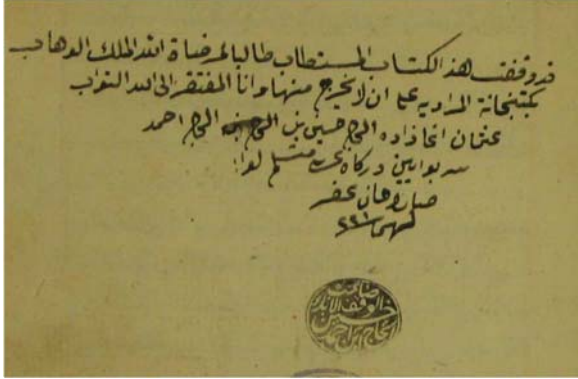 قد وقفت هذا الكتاب المستطاب طالبا لمرضاة الله الملك الوهاب
بكتبخانة المرادية على ان لا يخرج منها وانا المفتقر الى الله التواب
عثمان اغا زاده الحاج حسين بن الحاج احمد
سر بوابين دركاه متسلم لواء
صاروخان
الحاج حسين بن احمد